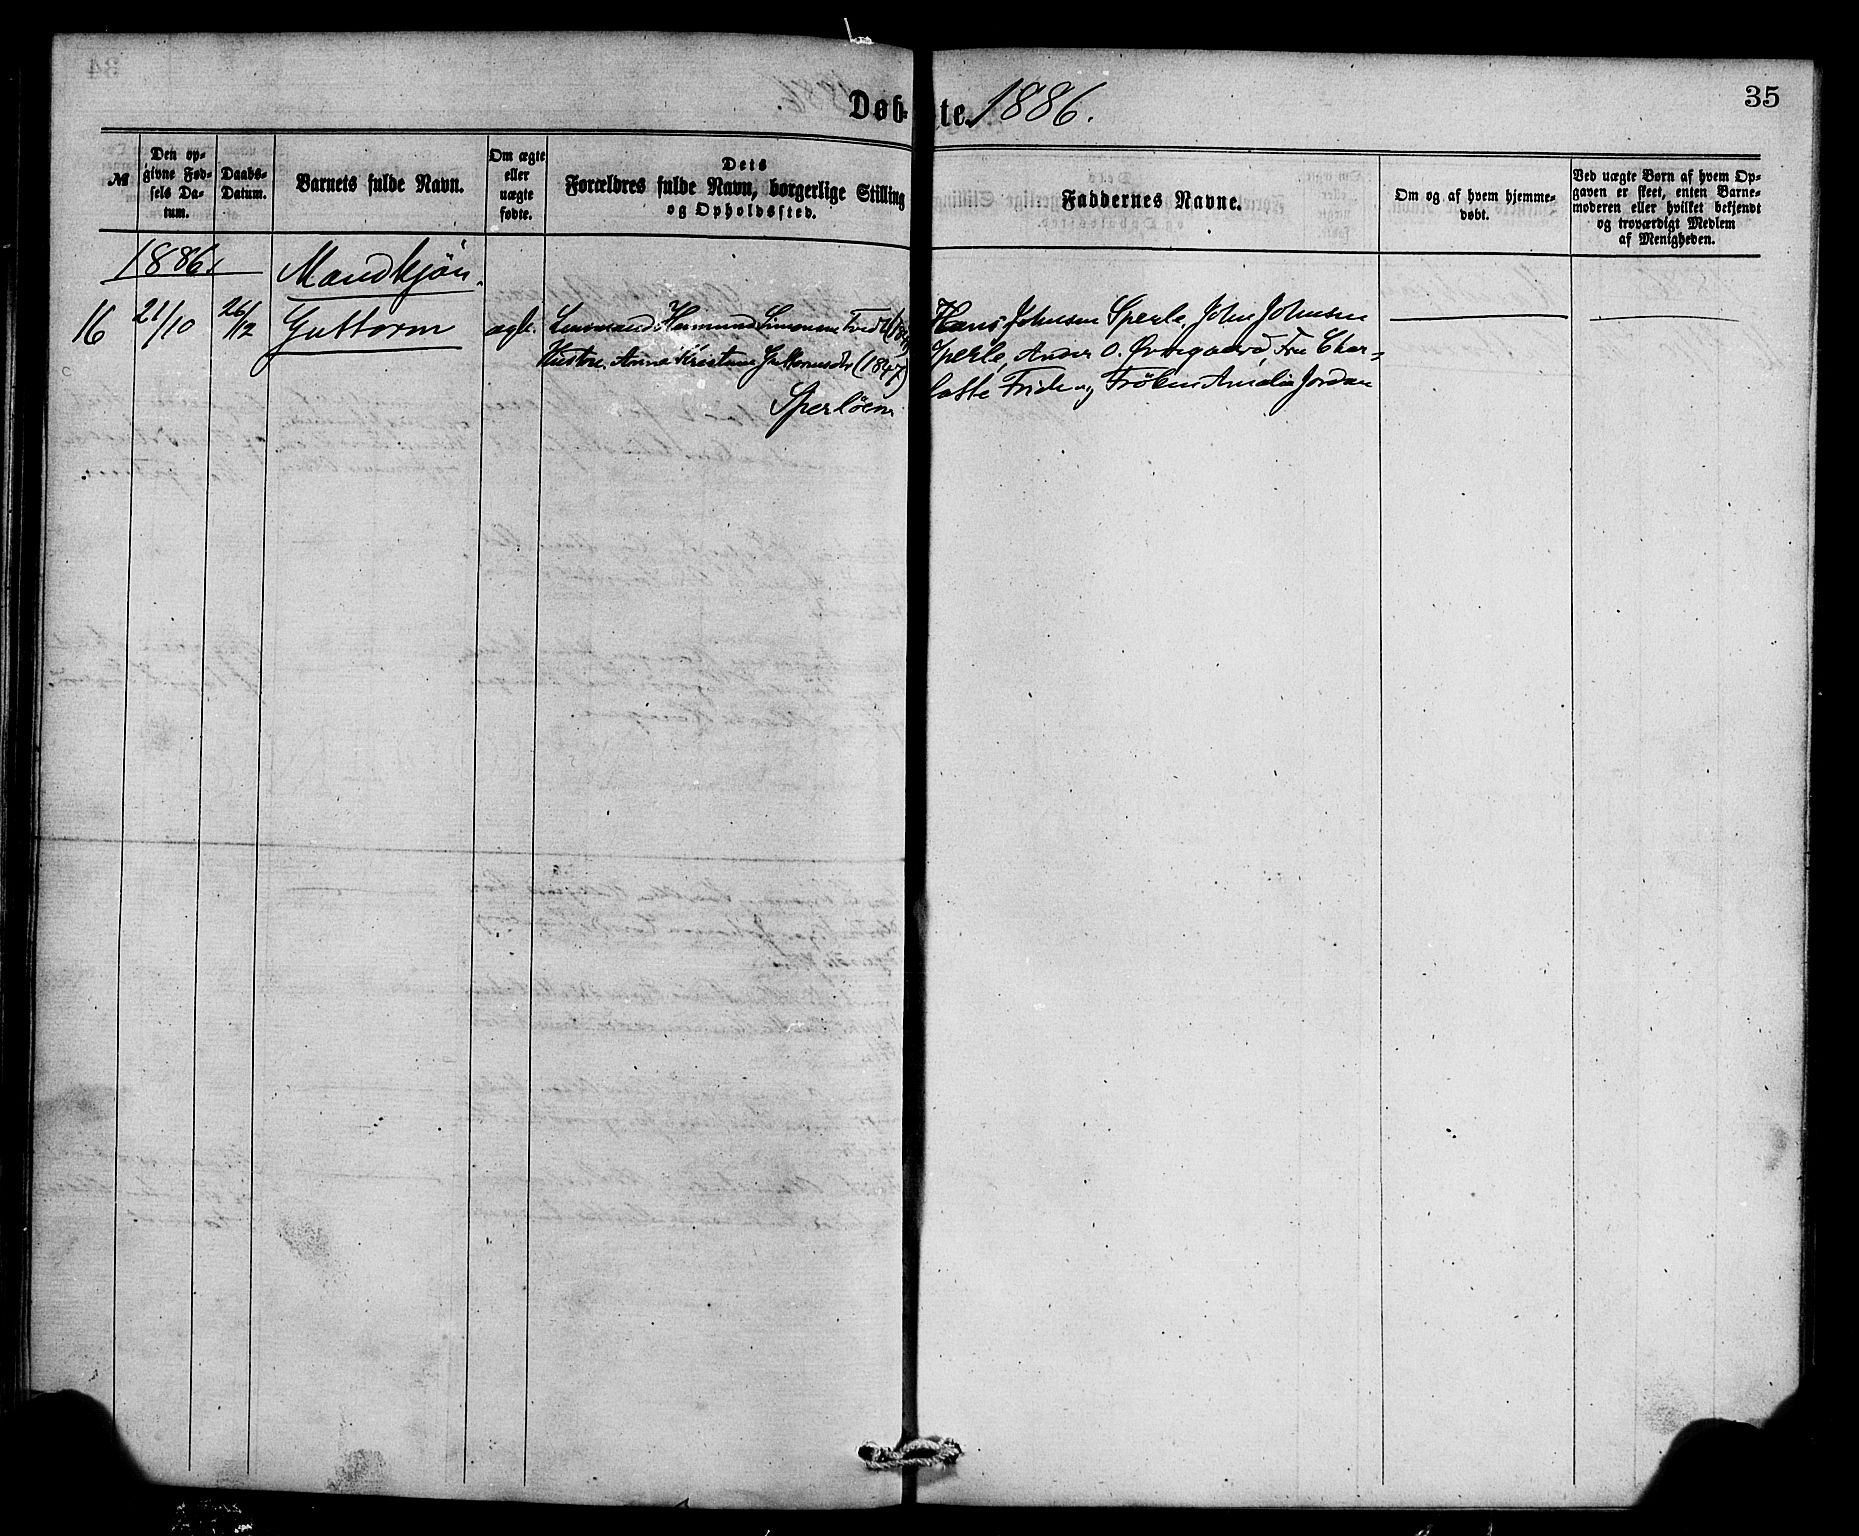 Døb- te. 1886.
35
№
Den op-
givne Fød-
sels Da-
tum.
Daabs-
Datum.
Barnets fulde Navn.
Om ægte
eller
uægte
fødte.
Dets
Forældres fulde Navn, borgerlige Stilling
og Opholdssted.
Faddernes Navne.
Om og af hvem hjemme-
døbt.
Ved uægte Børn af hvem Op-
gaven er skeet, enten Barne-
moderen eller hvilket bekjendt
og troværdigt Medlem
af Menigheden.
1886.
Mandkjøn.
16 21/10 26/12 Guttorm ægte.
Simonsen
Hustru Anna Kristine Guttormsdtr (1847)
Hans Johnsen Sperle, John Johnsen
Sperle, Anders O. Øvregaard, Fru Char-
lotte Frich og Frøken Amalia Jordan